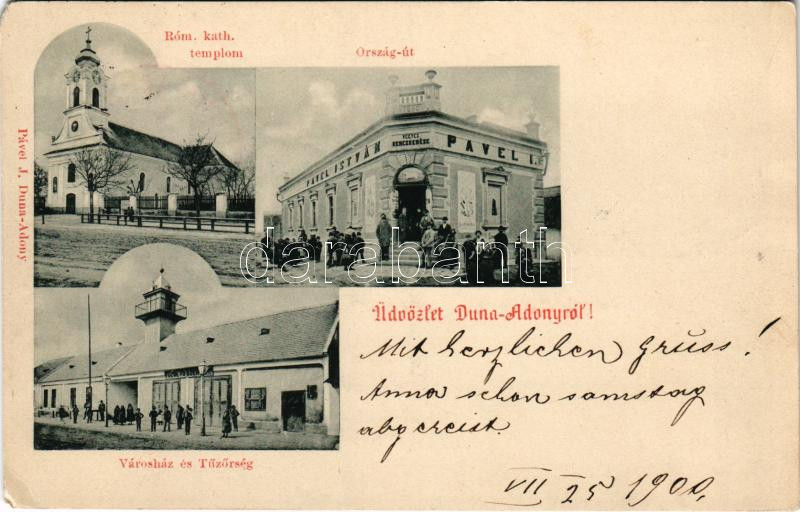 Róm. kath.
templom
Ország-út
Pável J. Duna-Adony
VEGYES
KERESKEDÉSE
PAVEL ISTVÁN
PAVEL I.
darabanth
Üdvözlet Duna-Adonyról!
Mit herzlichen Gruss!
Anna schon samstag
abgereist.
Városház és Tűzőrség
VII 25 1900.